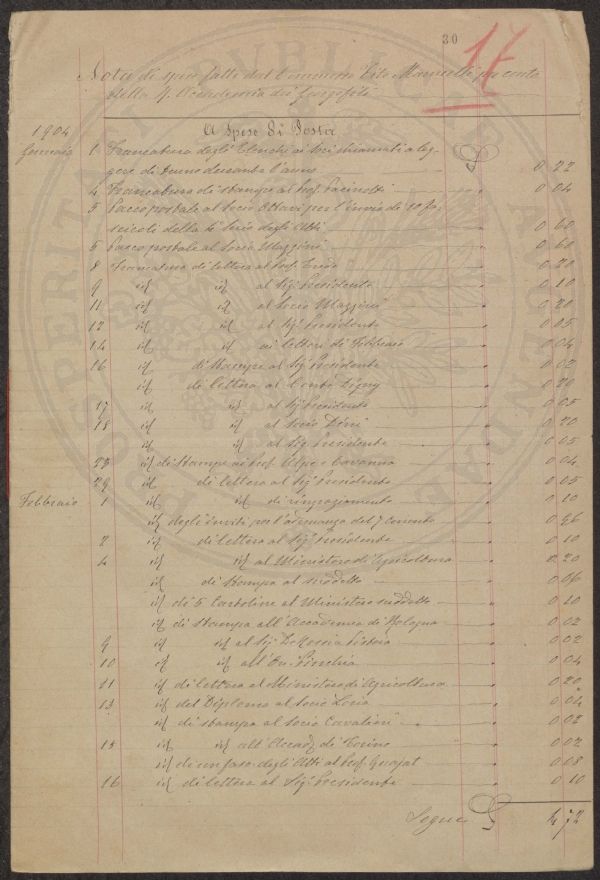 30
17
Nota di spese fatte dal Commesso Tito Marucelli per conto
della R. Accademia dei Georgofili
A Spese di Posta
1904
Gennaio 1 Francatura degli Elenchi ai Soci chiamati a leg=
gere durante l'anno 0 22
4 Francatura di stampe al Prof. Pacinotti 0 04
5 Pacco postale al Socio Ottavi per l'invio de 10 fa=
scicoli della Serie degli Atti 0 60
5 Pacco postale al Socio Mazzini 0 60
8 Francatura di lettera al Prof. 0 20
9 id id al Sig. Presidente 0 10
11 id id al Socio Mazzini 0 20
12 id id al Sig. Presidente 0 05
14 id id ai lettori di Febbraio 0 04
16 id di Stampe al Sig. Presidente 0 02
id di lettera al Conte Digny 0 20
17 id id al Sig. Presidente 0 05
18 id id al Socio Dini 0 20
id id al Sig. Presidente 0 05
23 id di Stampe ai Prof. Alpe e Cavanna 0 04
29 id di lettera al Sig. Presidente 0 05
Febbraio 1 id id di ringraziamento 0 10
id degli inviti per l'adunanza del 7 Corrente 0 96
2 id di lettera al Sig. Presidente 0 10
4 id id al Ministero di Agricoltura 0 20
id di Stampa al suddetto 0 06
id di 5 Cartoline al Ministero suddetto 0 10
id di Stampa all'Accademia di Bologna 0 02
9 id id al Sig. Pistoia 0 02
10 id id all'On. 0 04
11 id di lettera al Ministero di Agricoltura 0 20
13 id del Diploma al Socio Loria 0 04
id di stampa al Socio Cavalieri 0 02
15 id id all'Accad. di Torino 0 02
id di un fasc. degli Atti al Prof. 0 08
16 id di lettera al Sig. Presidente 0 10
Segue 4 72